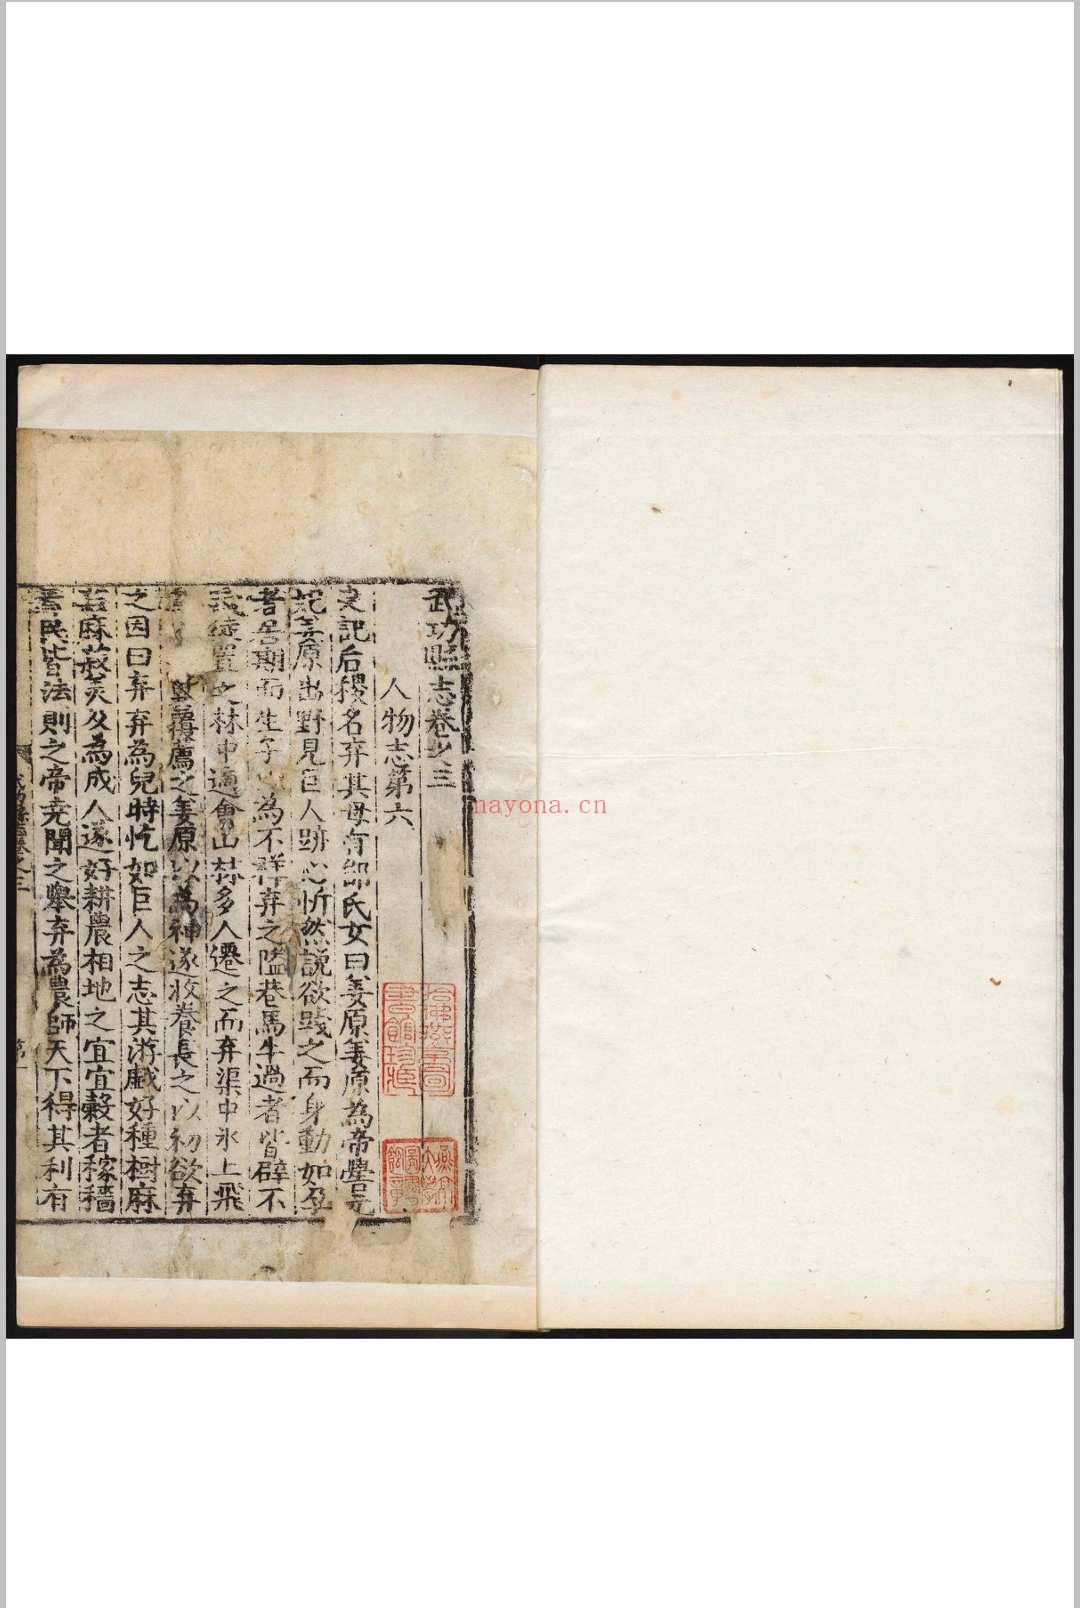 武功縣志卷之三
人物志第六
史記后稷名弃其母有邰氏女曰姜原姜原為帝嚳元
妃姜原出野見巨人跡心忻然說欲踐之而身動如孕
者居期而生子以為不祥弃之隘巷馬牛過者皆辟不
踐徙置之林中適會山林多人遷之而弃渠中氷上飛
鳥翼覆薦之姜原以為神遂收養長之以初欲弃
之因曰弃弃為兒時忔如巨人之志其游戲好種樹麻
菽麻菽美及為成人遂好耕農相地之宜宜穀者稼穡
焉民皆法則之帝堯聞之舉弃為農師天下得其利有
武功縣志卷之三
第一
哈佛燕京圖書館珍藏
nayona.cn